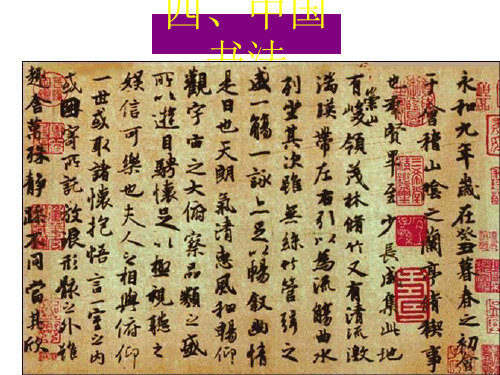 四、中国
书法
永和九年歲在癸丑暮春之初會
于會稽山陰之蘭亭脩禊事
也羣賢畢至少長咸集此地
有崇山峻領茂林脩竹又有清流激
湍暎帶左右引以為流觴曲水
列坐其次雖無絲竹管弦之
盛一觴一詠亦足以暢敘幽情
是日也天朗氣清惠風和暢仰
觀宇宙之大俯察品類之盛
所以遊目騁懷足以極視聽之
娛信可樂也夫人之相與俯仰
一世或取諸懷抱悟言一室之內
或因寄所託放浪形骸之外雖
趣舍萬殊靜躁不同當其欣